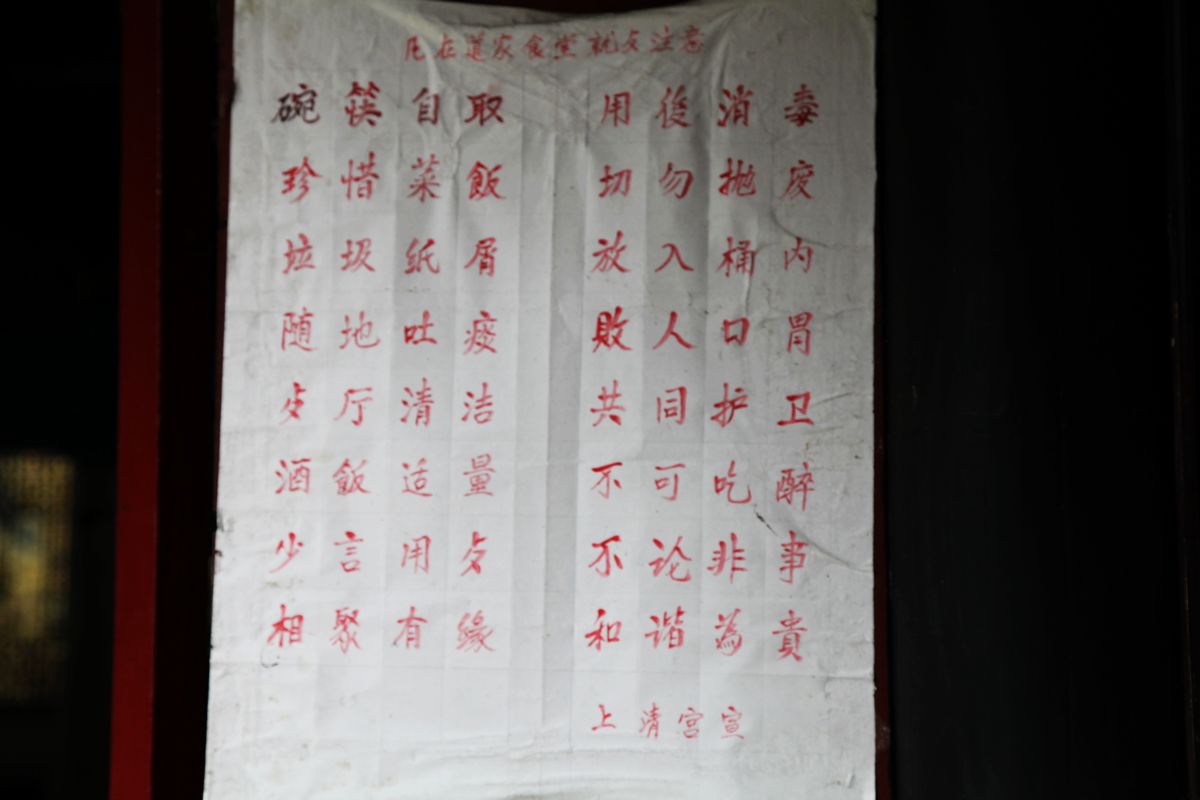 凡在道家食堂就歺注意
碗筷自取 用後消毒
珍惜菜飯 切勿抛废
垃圾纸屑 放入桶内
随地吐痰 敗人口胃
歺厅清洁 共同护卫
酒飯适量 不可吃醉
少言用歺 不论非事
相聚有缘 和谐為貴
上清宫宣